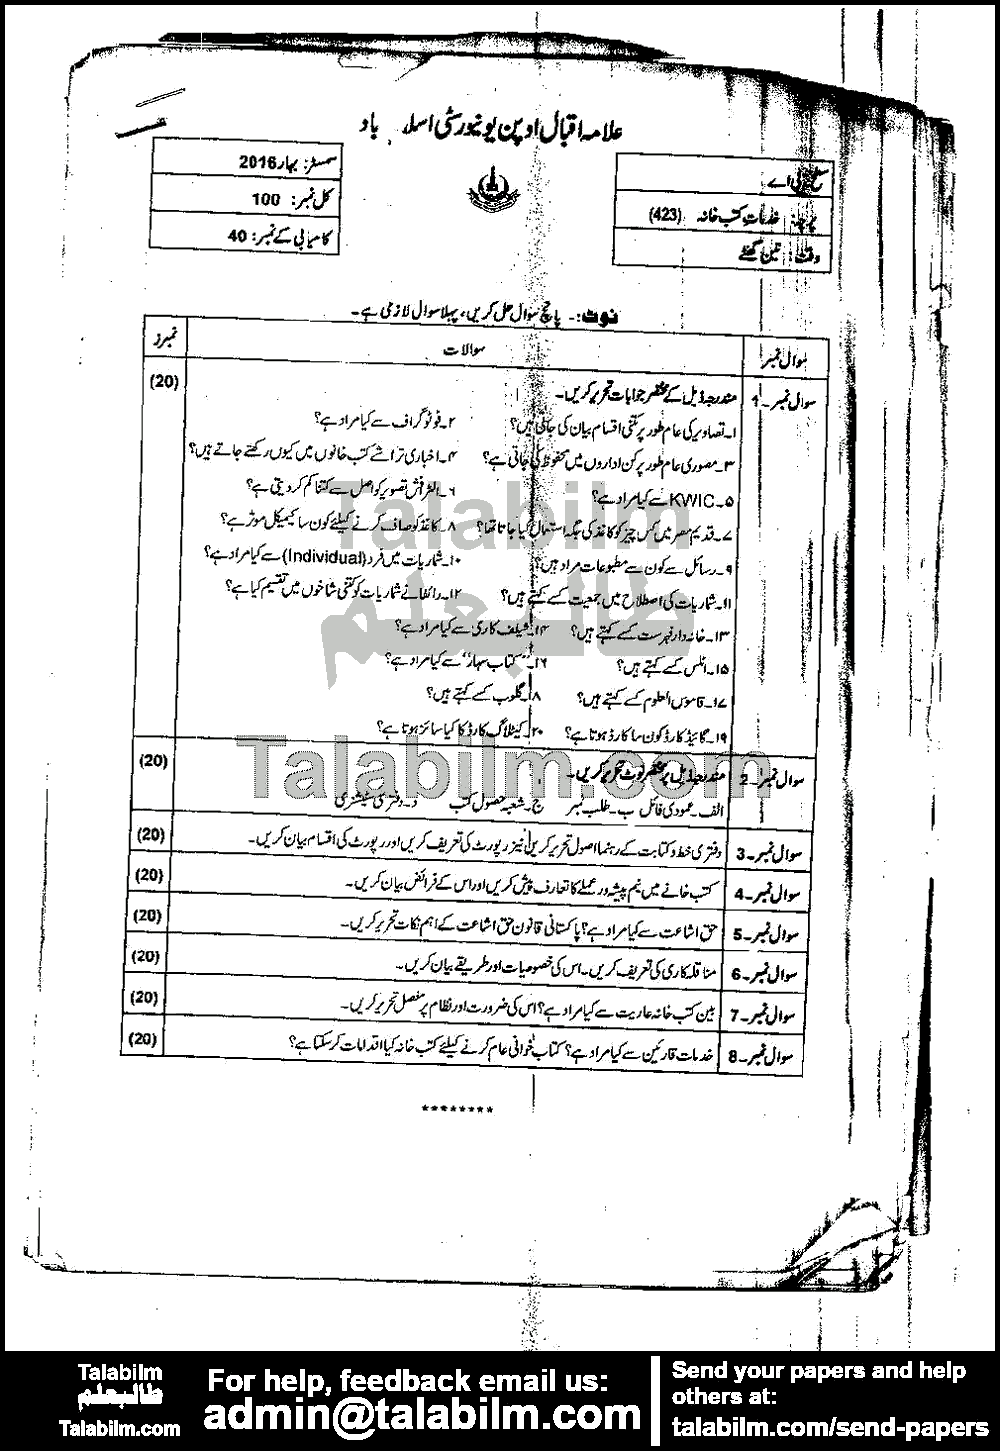 علامہ اقبال اوپن یونیورسٹی اسلام باد
سطح: بی اے
پرچہ: خدمات کتب خانہ (423)
وقت: تین گھنٹے
سمسٹر: بہار 2016
کل نمبر: 100
کامیابی کے نمبر: 40
نوٹ:۔ پانچ سوال حل کریں، پہلا سوال لازمی ہے۔
سوال نمبر سوالات نمبرز
سوال نمبر۔1 مندرجہ ذیل کے مختصر جوابات تحریر کریں۔ (20)
۱۔ تصاویر کی عام طور پر کتنی اقسام بیان کی جاتی ہیں؟ ۲۔ فوٹو گراف سے کیا مراد ہے؟
۳۔ مصوری عام طور پر کن اداروں میں محفوظ کی جاتی ہے؟ ۴۔ اخباری تراشے کتب خانوں میں کیوں رکھتے جاتے ہیں؟
۵۔ KWIC سے کیا مراد ہے؟ ۶۔ الٹرافش تصویر کو اصل سے کتنا کم کر دیتی ہے؟
۷۔ قدیم مصر میں کس چیز کو کاغذ کی جگہ استعمال کیا جاتا تھا؟ ۸۔ کاغذ کو صاف کرنے کیلئے کون سا کیمیکل موثر ہے؟
۹۔ رسائل سے کون سے مطبوعات مراد ہیں؟ ۱۰۔ شماریات میں فرد (Individual) سے کیا مراد ہے؟
۱۱۔ شماریات کی اصطلاح میں جمعیت کسے کہتے ہیں؟ ۱۲۔ رانگنا نے شماریات کو کتنی شاخوں میں تقسیم کیا ہے؟
۱۳۔ خانہ دار فہرست کسے کہتے ہیں؟ ۱۴۔ شیلف کاری سے کیا مراد ہے؟
۱۵۔ اٹلس کسے کہتے ہیں؟ ۱۶۔ "کتاب سہار" سے کیا مراد ہے؟
۱۷۔ قاموس العلوم کسے کہتے ہیں؟ ۱۸۔ گلوب کسے کہتے ہیں؟
۱۹۔ گائیڈ کارڈ کون سا کارڈ ہوتا ہے؟ ۲۰۔ کیٹلاگ کارڈ کا کیا سائز ہوتا ہے؟
سوال نمبر۔2 مندرجہ ذیل پر مختصر نوٹ تحریر کریں۔ (20)
الف۔ عمودی فائل ب۔ طلب نمبر ج۔ شعبہ حصول کتب د۔ دفتری سٹیشنری
سوال نمبر۔3 دفتری خط و کتابت کے رہنما اصول تحریر کریں نیز رپورٹ کی تعریف کریں اور رپورٹ کی اقسام بیان کریں۔ (20)
سوال نمبر۔4 کتب خانے میں نیم پیشہ ور عملے کا تعارف پیش کریں اور اس کے فرائض بیان کریں۔ (20)
سوال نمبر۔5 حق اشاعت سے کیا مراد ہے؟ پاکستانی قانون حق اشاعت کے اہم نکات تحریر کریں۔ (20)
سوال نمبر۔6 مناقلہ کاری کی تعریف کریں۔ اس کی خصوصیات اور طریقے بیان کریں۔ (20)
سوال نمبر۔7 بین کتب خانہ عاریت سے کیا مراد ہے؟ اس کی ضرورت اور نظام پر مفصل تحریر کریں۔ (20)
سوال نمبر۔8 خدمات قارئین سے کیا مراد ہے؟ کتاب خوانی عام کرنے کیلئے کتب خانہ کیا اقدامات کر سکتا ہے؟ (20)
********
Talabilm
طالبعلم
Talabilm.com
Talabilm
طالبعلم
Talabilm.com
For help, feedback email us:
admin@talabilm.com
Send your papers and help
others at:
talabilm.com/send-papers